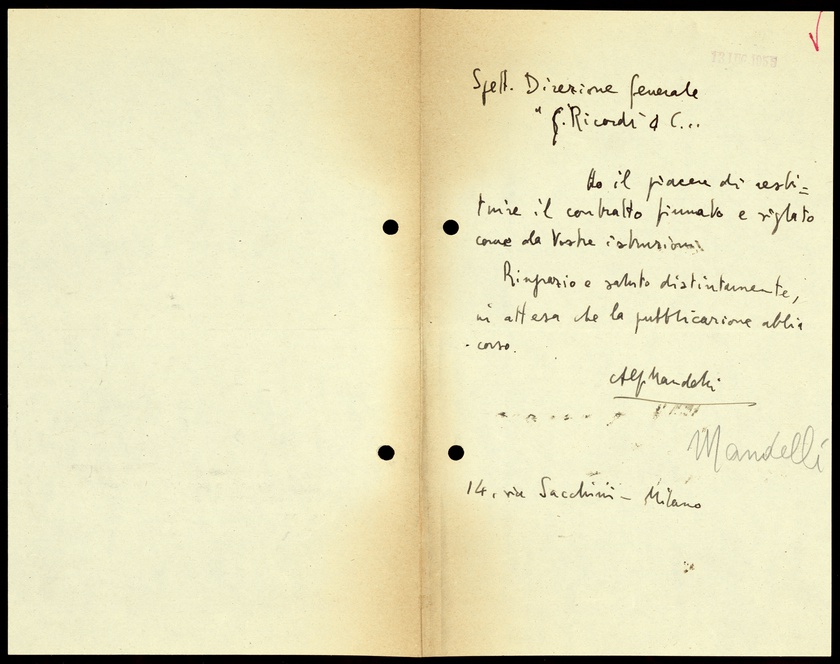 Spett. Direzione Generale
"G. Ricordi & C...
Ho il piacere di resti=
tuire il contratto firmato e siglato
come da Vostre istruzioni.
Ringrazio e saluto distintamente,
in attesa che la pubblicazione abbia
corso.
Alf Mandelli
Mandelli
14, via Sacchini - Milano